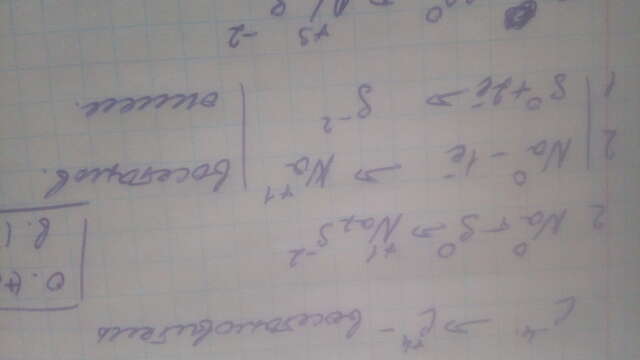 C⁻⁴ → C⁺⁴ – восстановитель
2Na⁰ + S⁰ → Na₂⁺¹S⁻²
2 | Na⁰ – 1ē → Na⁺¹ | восстанов.
1 | S⁰ + 2ē → S⁻² | окислен.
0 +3 -2